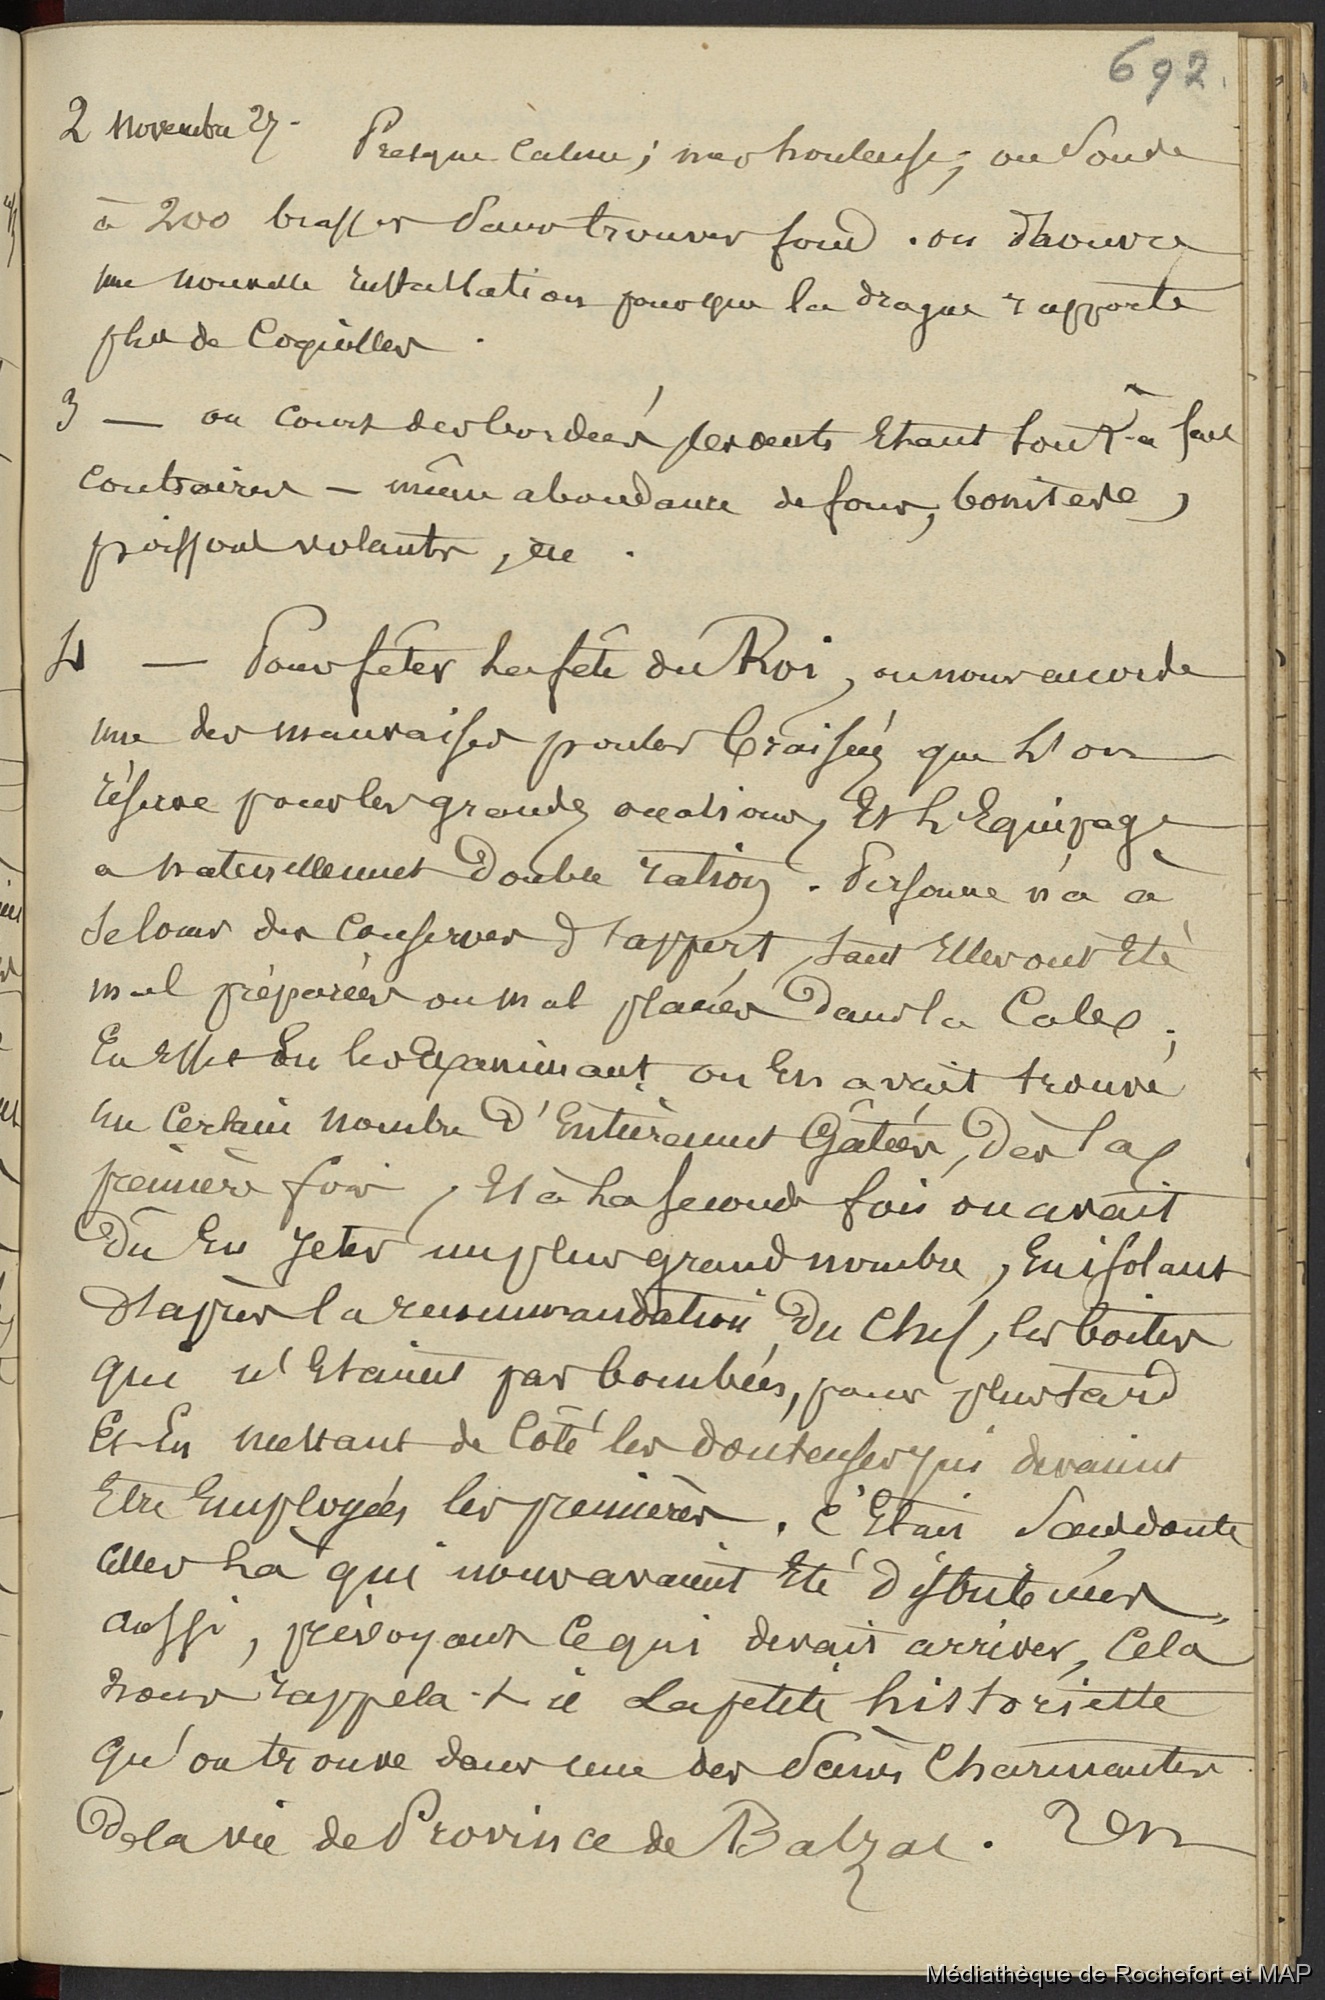 692.
2 novembre 27. Presque calme; mer houleuse; on sonde
à 200 brasses sans trouver fond. on d'aouvre
une nouvelle installation pour que la drague rapporte
plus de Coquilles.
3 — on court des bordées, les vents étant tout-à-fait
contraires — même abondance de fous, bonites,
poissons volants, etc.
4 — Pour fêter la fête du Roi, on nous accorde
une des mauvaises poules braisées que l'on
réserve pour les grandes occasions, Et l'Equipage
a naturellement Double ration. Personne n'a à
se louer des conserves d'appert, tant Elles ont Eté
mal préparées ou mal placées Dans la Cale;
En Effet En les Examinant on En avait trouvé
un Certain nombre D'Entièrement Gâtées, Dès la
première fois, Et à la seconde fois on avait
Dû En Jeter un plus grand nombre, En isolant
D'après la recommandation Du Chef, les boites
qui n'Etaient pas bombées, pour plus tard
Et En mettant de Côté les douteuses qui devaient
Etre Employées les premières. C'Etait sans doute
celles là qui nous avaient Eté distribuées,
aussi, prévoyant ce qui devait arriver, Cela
nous rappela-t-il La petite historiette
qu'on trouve dans une des Scènes Charmantes
De la vie de Province de Balzac. Un
Médiathèque de Rochefort et MAP